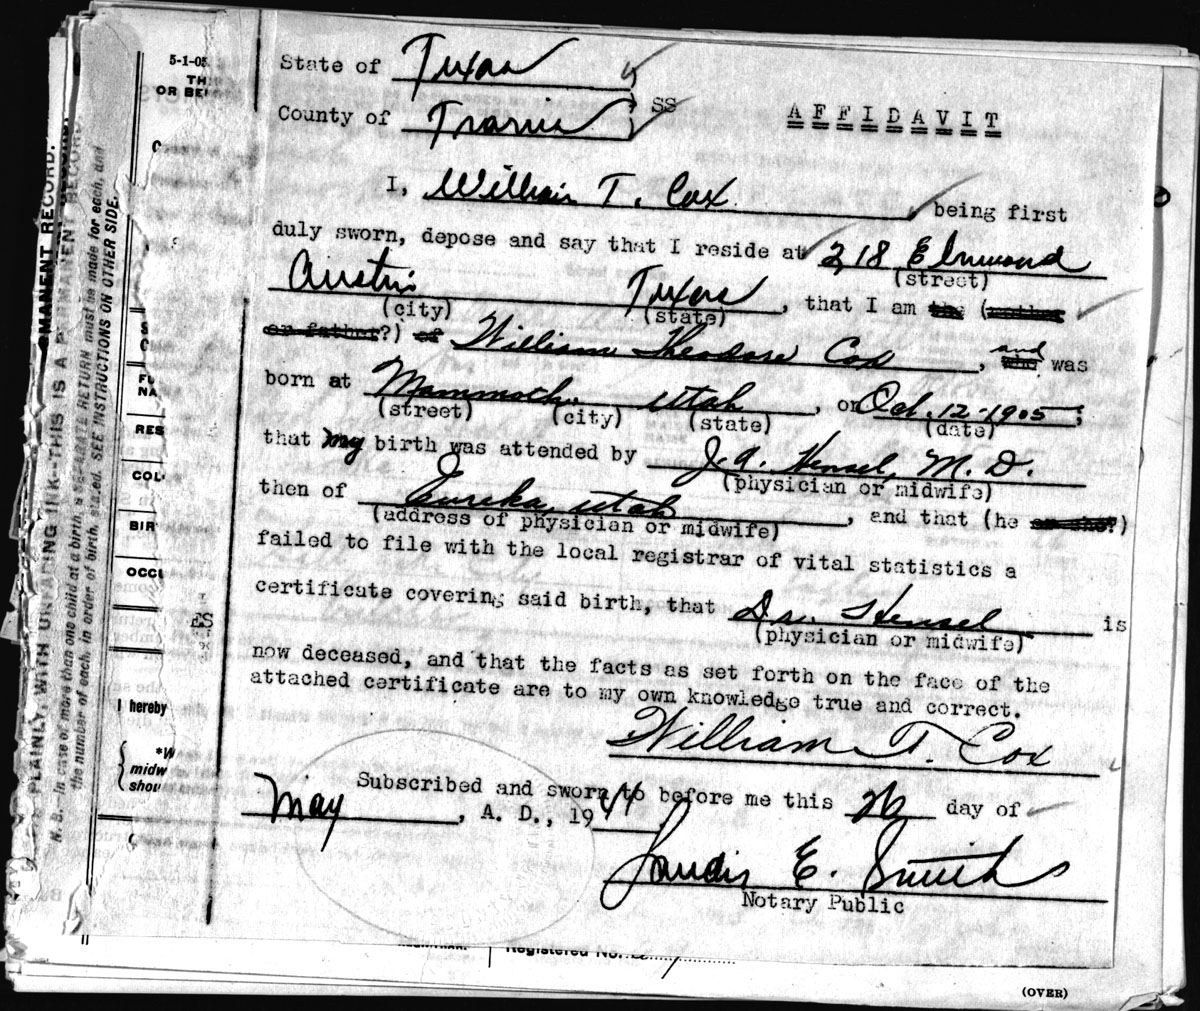 5-1-05
TH
OR BE
State of Texas
County of Travis SS
AFFIDAVIT
I, William T. Cox being first
duly sworn, depose and say that I reside at 218 Elmwood
(street)
Austin Texas, that I am the (mother
(city) (state)
or father?) of William Theodore Cox, and who was
born at Mammoth Utah, on Oct. 12-1905;
(street) (city) (state) (date)
that my birth was attended by J.A. Hensel, M.D.
(physician or midwife)
then of Eureka, Utah, and that (he or she?)
(address of physician or midwife)
failed to file with the local registrar of vital statistics a
certificate covering said birth, that Dr. Hensel is
(physician or midwife)
now deceased, and that the facts as set forth on the face of the
attached certificate are to my own knowledge true and correct.
William T. Cox
Subscribed and sworn to before me this 26 day of
May, A. D., 1944
E. Smith
Notary Public
Registered No.
(OVER)
PLAINLY, WITH UNFADING INK—THIS IS A PERMANENT RECORD.
N. B.—In case of more than one child at a birth a SEPARATE RETURN must be made for each, and
the number of each, in order of birth, stated. SEE INSTRUCTIONS ON OTHER SIDE.
FU
NA
RES
COL
BIR
OCCU
ES
I hereby
*W
midw
shou